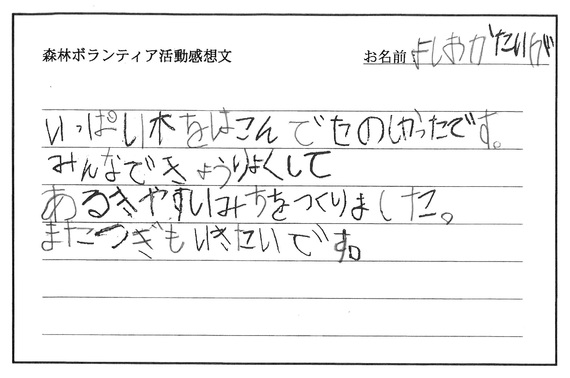 森林ボランティア活動感想文
お名前 よしおかたいが
いっぱい木をはこんでたのしかったです。
みんなできょうりょくして
あるきやすいみちをつくりました。
またつぎもいきたいです。